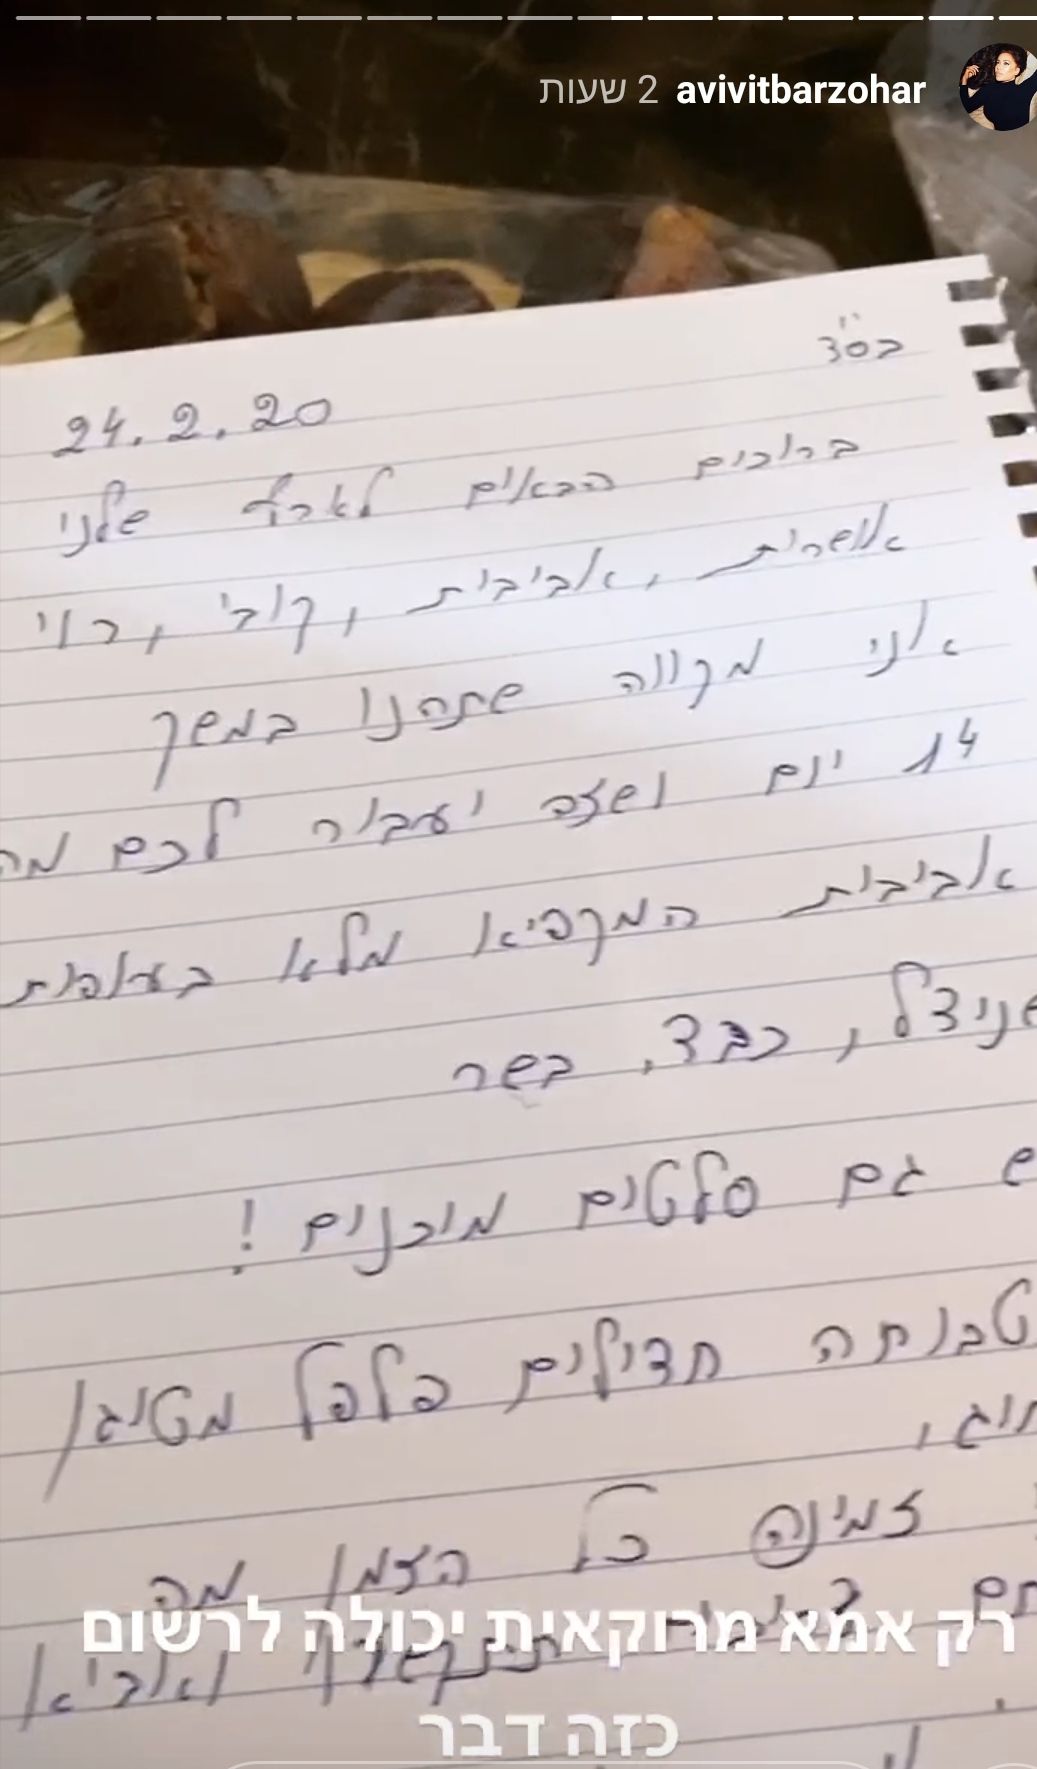 avivitbarzohar 2 שעות
בס"ד
24.2.20
ברוכים הבאים לארץ שלני
אושרית, אביבית, קובי, רוי
אני מקווה שתהנו במשך
14 יום ושזה יעבור לכם מה
אביבית המקפיא מלא בעופות
שניצל, כבד, בשר
ש גם סלטים מוכנים!
טבוחה חצילים פלפל מטוגן
זמינה כל הזמן מה
ואביא
רק אמא מרוקאית יכולה לרשום
כזה דבר